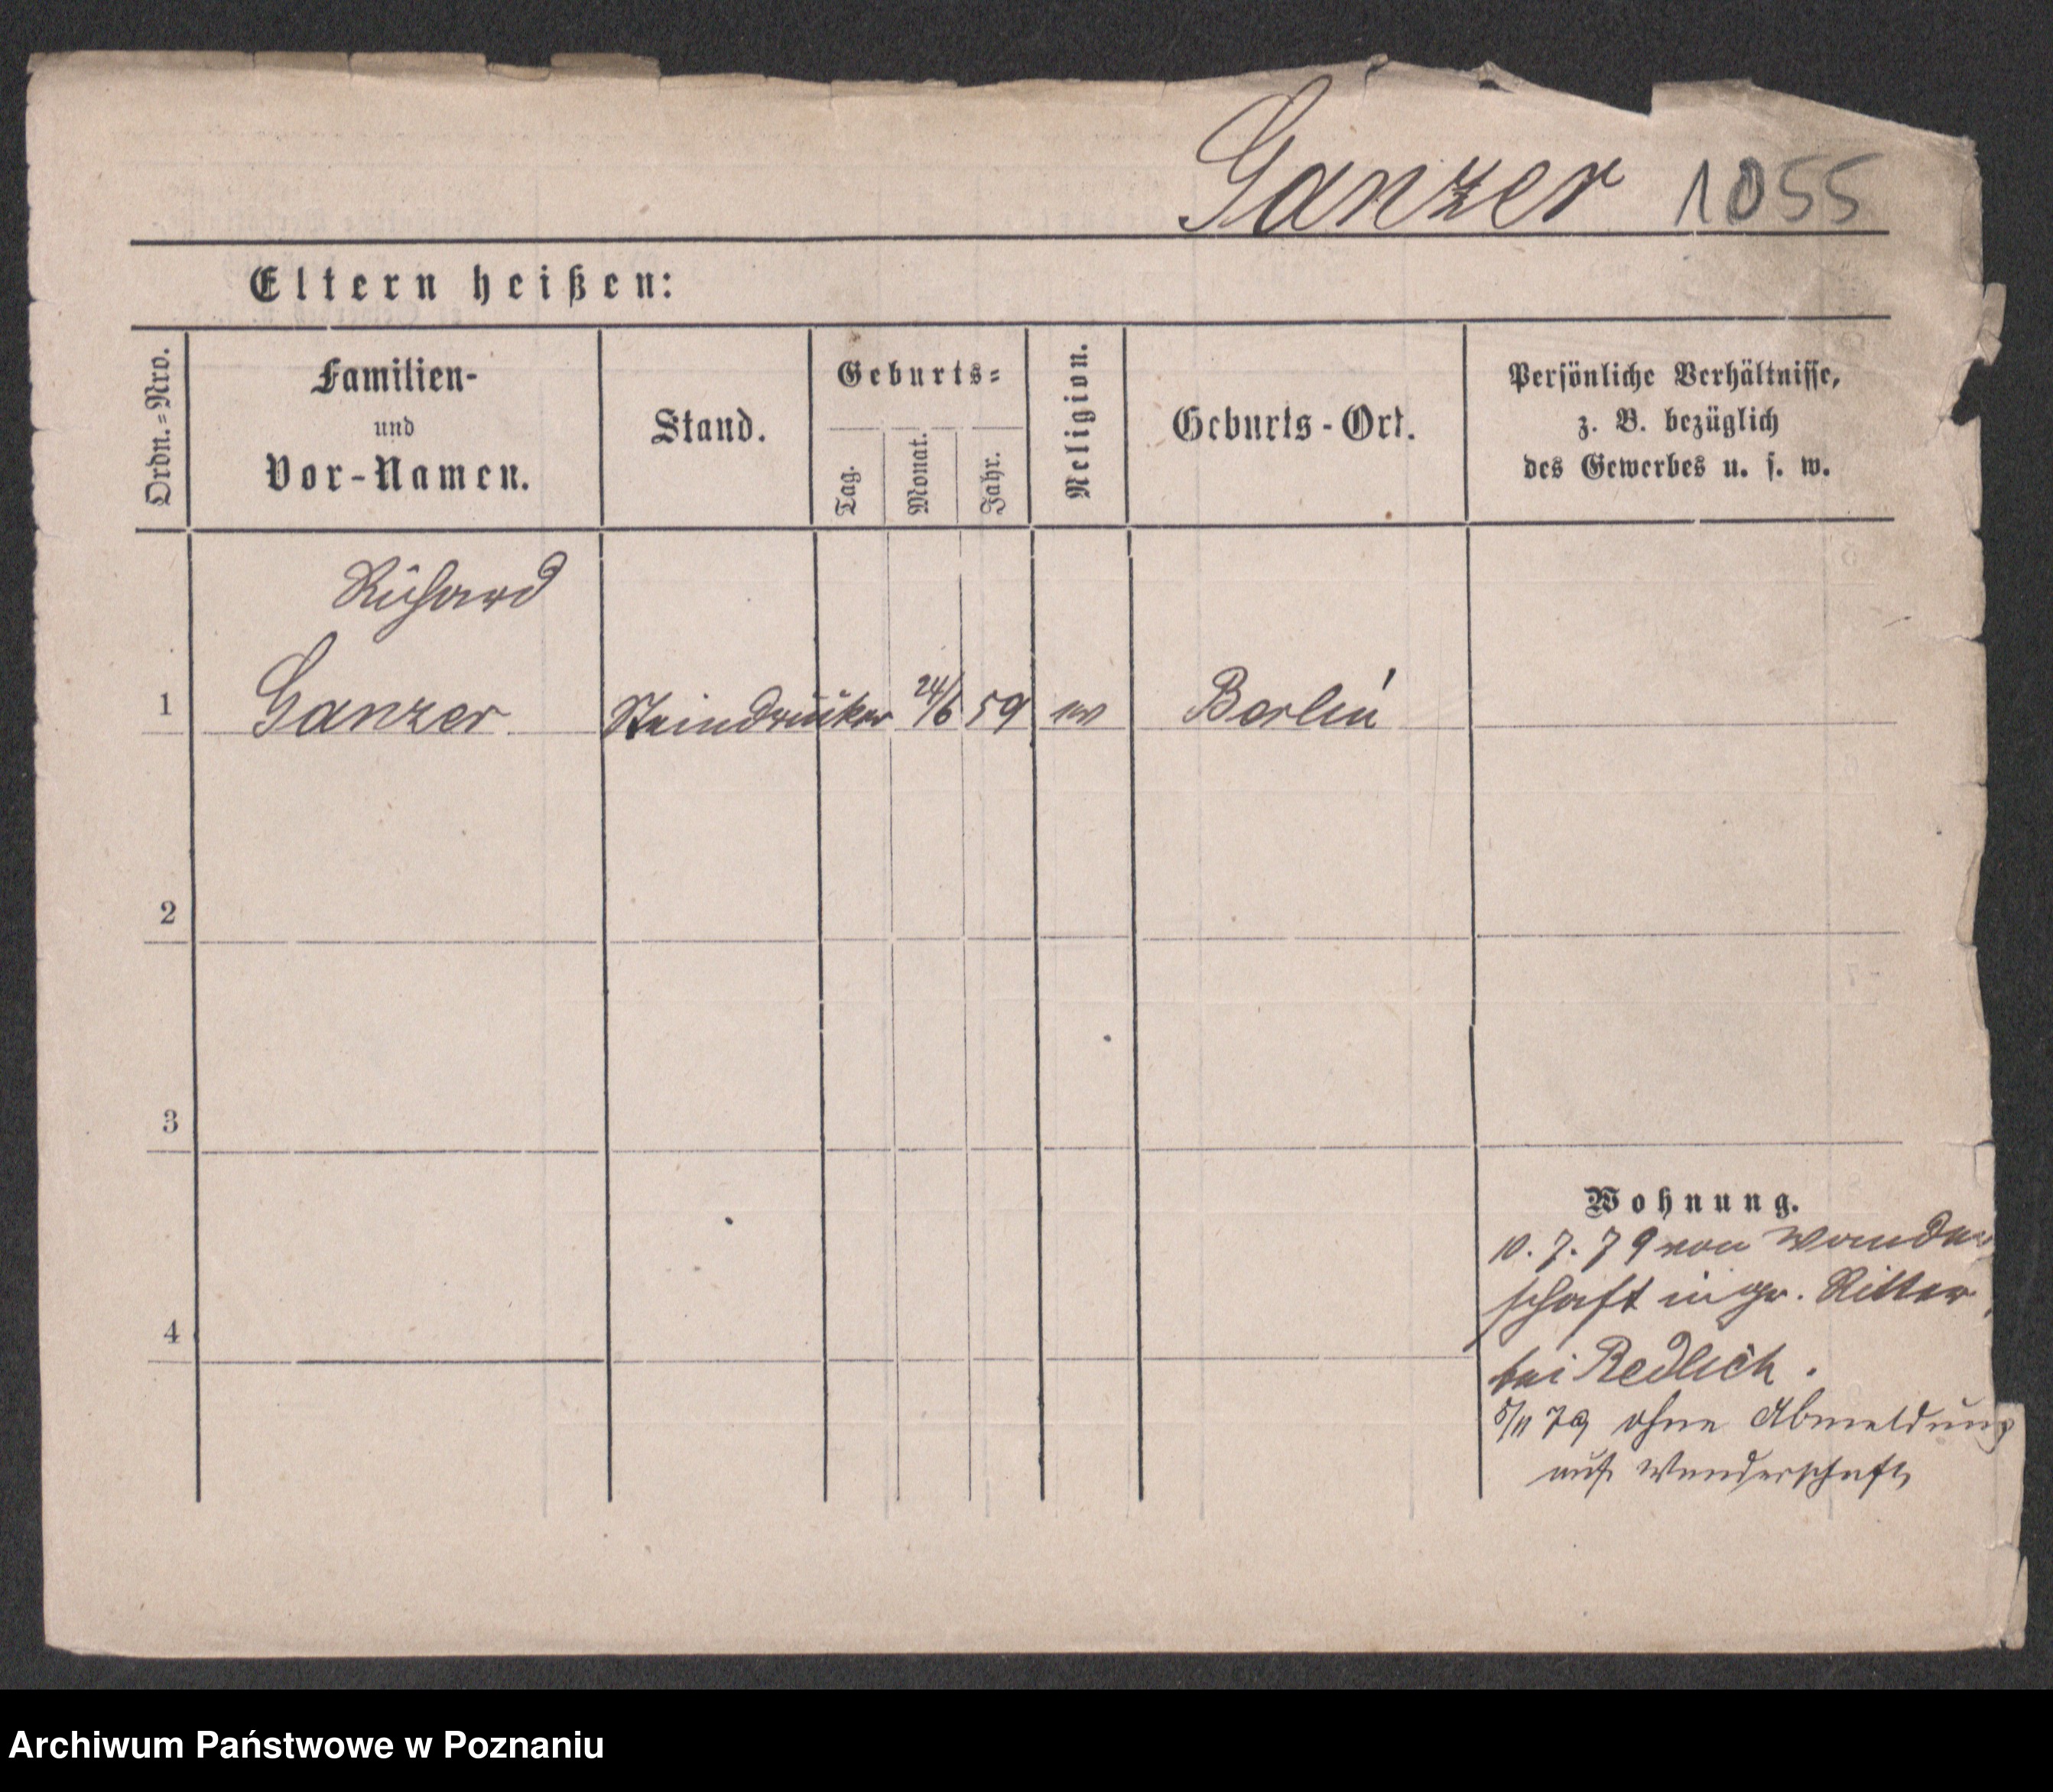 Ganzer 1055
Eltern heißen:
Ordn.=Nro.
Familien-
und
Vor-Namen.
Stand.
Geburts=
Tag.
Monat.
Jahr.
Religion.
Geburts-Ort.
Persönliche Verhältnisse,
z. B. bezüglich
des Gewerbes u. s. w.
Richard
1 Ganzer Steindrucker 24/6 59 ev Berlin
2
3
Wohnung.
10. 7. 79 von Wander
schaft in gr. Ritter
4
bei Redlich.
5/11 79 ohne Abmeldung
auf Wanderschaft
Archiwum Państwowe w Poznaniu